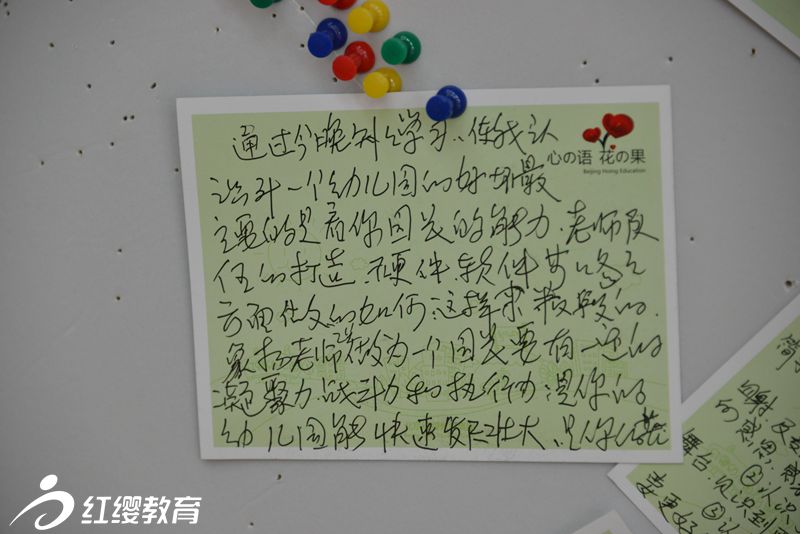 心の语 花の果
Beijing Hoing Education
通过今晚的学习，使我认
识到一个幼儿园的好坏最
主要的是看你园长的能力、老师队
伍的打造、硬件、软件等各
方面做的如何，这样来的。
象扬老师做为一个园长要有一定的
凝聚力、战斗力和执行力，是你的
幼儿园能快速发展壮大，是你的
红缨教育
感恩，
②认识
舞台，见识到
要更好
③认